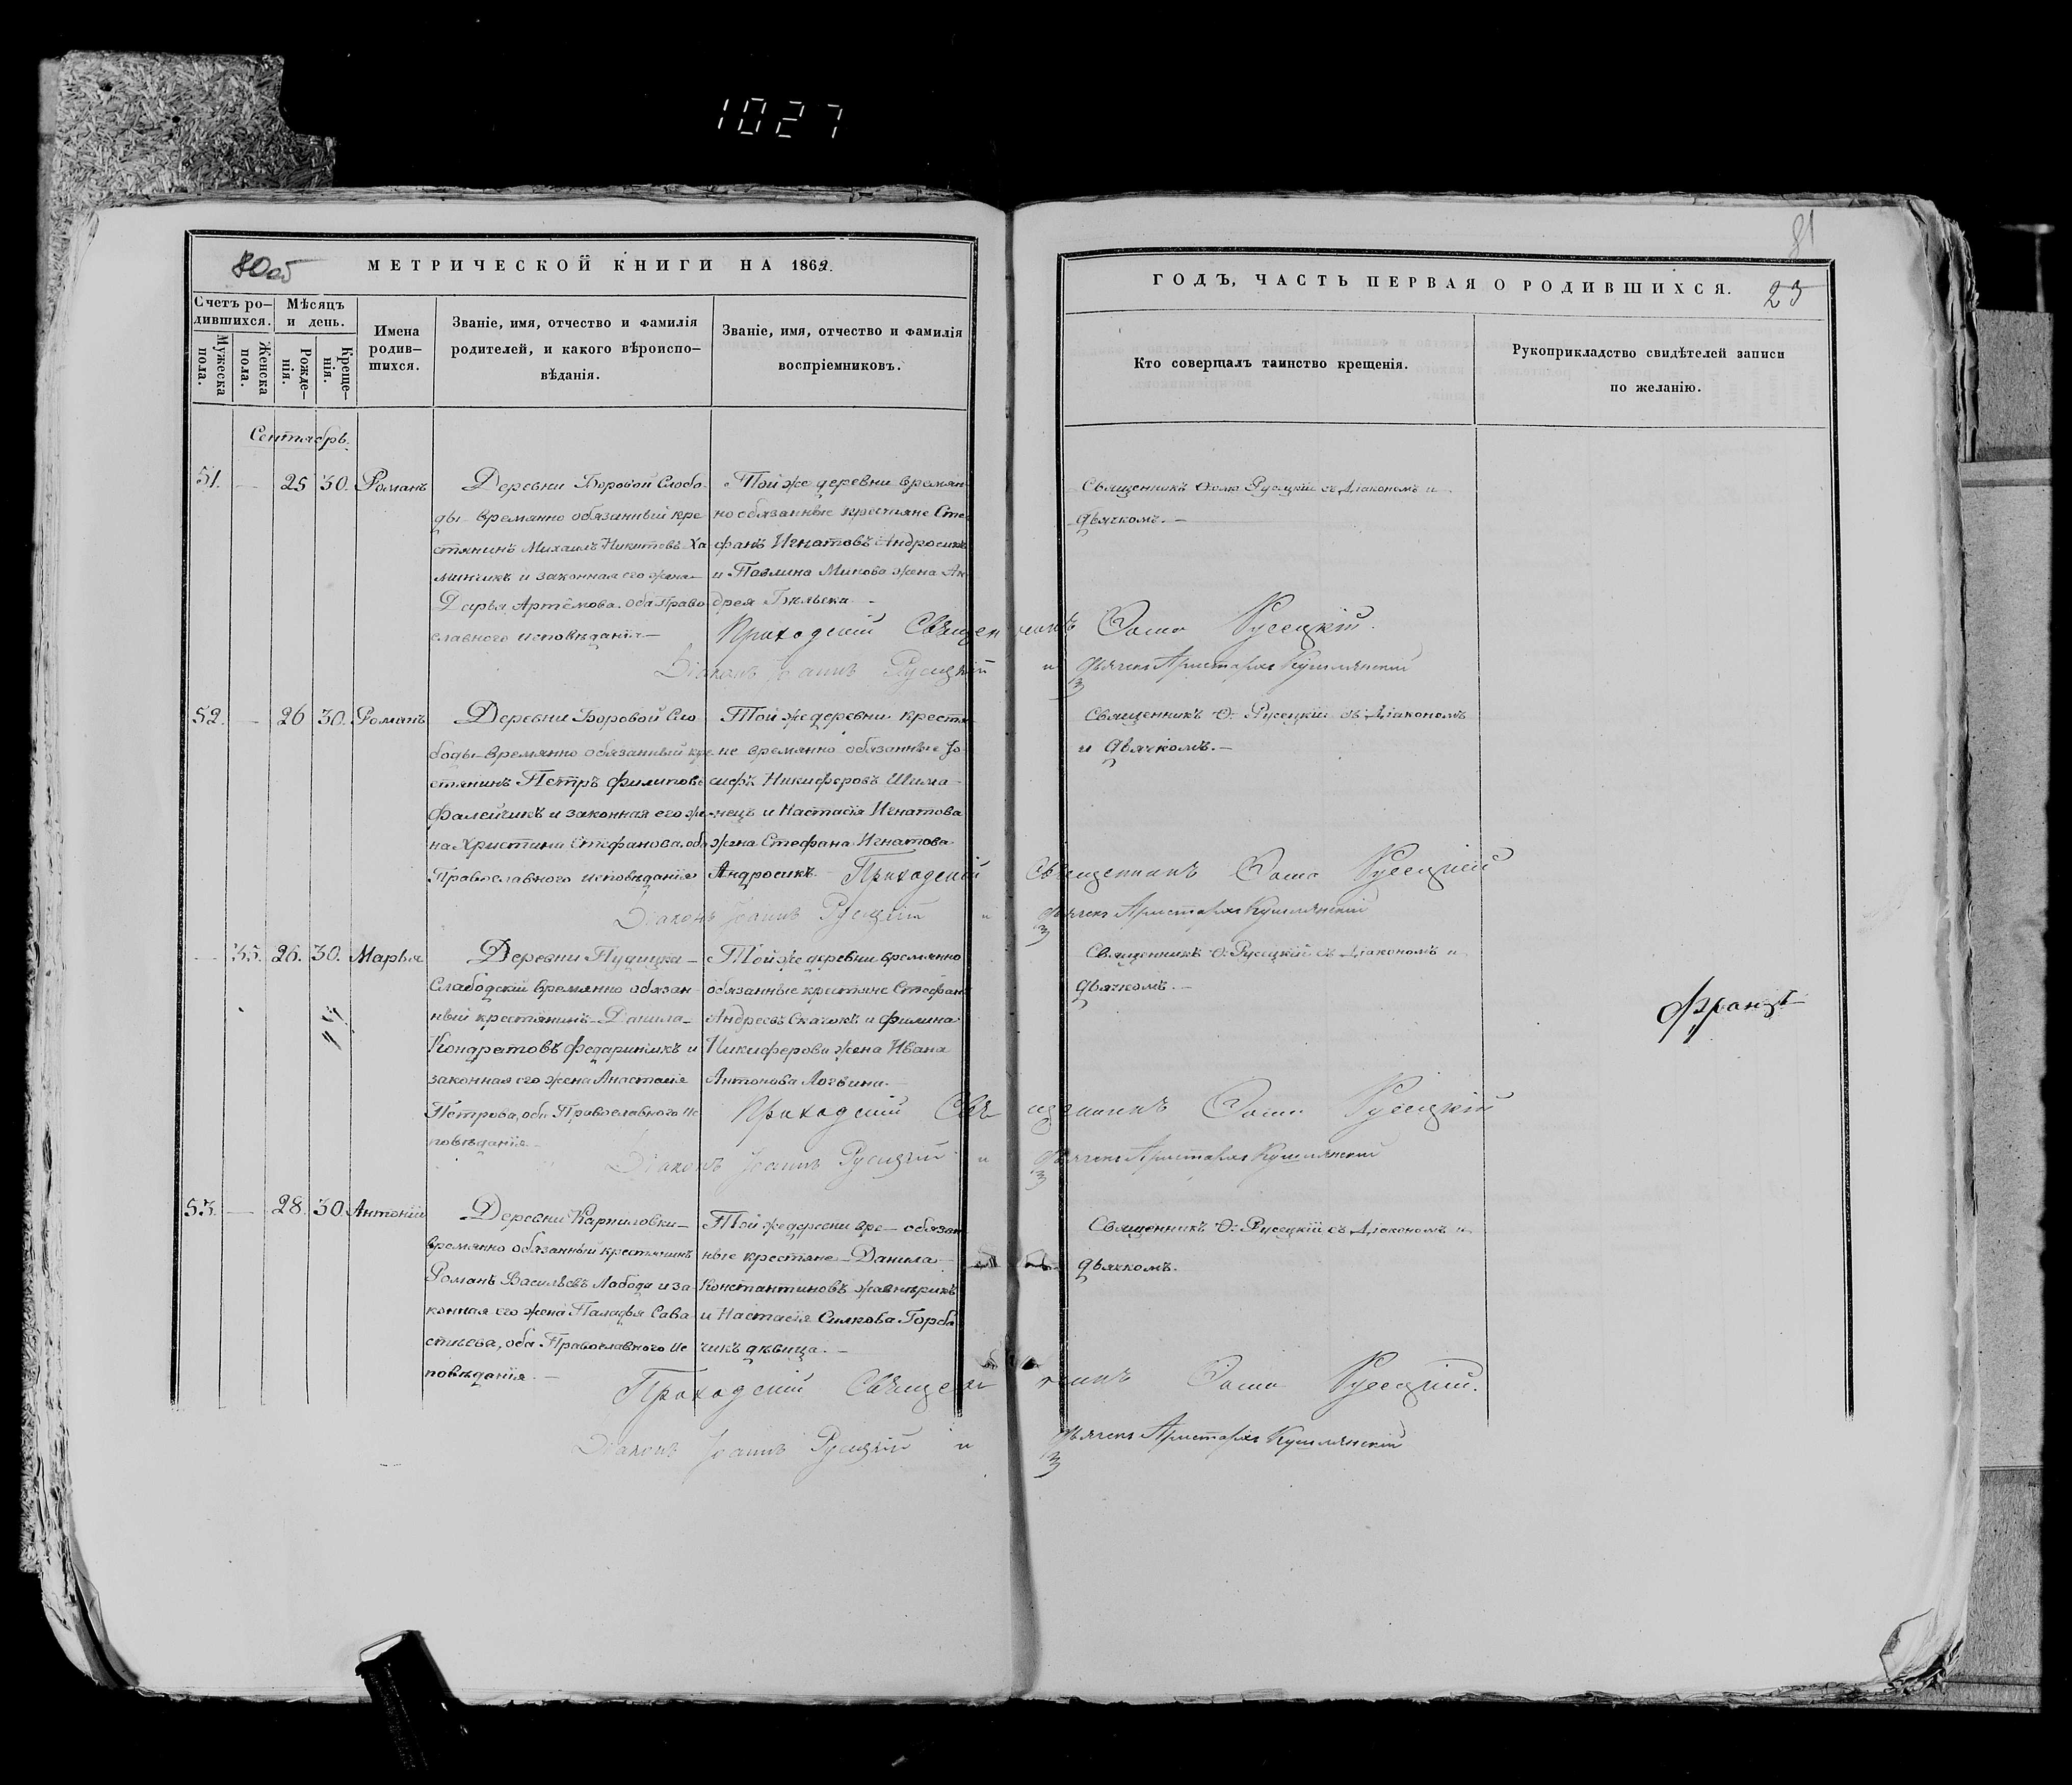 1027
80об
МЕТРИЧЕСКОЙ КНИГИ НА 1862.
Счетъ ро-
дившихся.
Мужеска
пола.
Женска
пола.
Мѣсяцъ
и день.
Рожде-
нія.
Креще-
нія.
Имена
родив-
шихся.
Званіе, имя, отчество и фамилія
родителей, и какого вѣроиспо-
вѣданія.
Званіе, имя, отчество и фамилія
воспріемниковъ.
81
ГОДЪ, ЧАСТЬ ПЕРВАЯ О РОДИВШИХСЯ.
23
Кто совершалъ таинство крещенія.
Рукоприкладство свидѣтелей записи
по желанію.
Сентябрь.
51. — 25 30. Романъ
Деревни Боровой Слобо-
ды временно обязанный кре
стянинъ Михаилъ Никитовъ Ха
минчикъ и законная его жена
Дарья Артёмова. оба Право
славного исповѣданія—
Той же деревни времян
но обязанные крестяне Сте
фанъ Игнатовъ Андросикъ
и Павлина Микова жена Ан
дрея
Священникъ Ѳома Русецкій съ Діакономъ и
дьячкомъ.—
Приходскій Священникъ Ѳома Русецкій.
Діаконъ Іоаннъ Русецкій и дьячекъ Аристархъ
52. — 26 30. Романъ
Деревни Боровой Сло
боды времянно обязанный кре
стянинъ Петръ Филиповъ
Фалейчикъ и законная его же
на Христина Стефанова, оба
Православного исповѣданія
Той же деревни крестя
не времянно обязанные Іо
сифъ Никифоровъ Шима
нецъ и Настасія Игнатова
жена Стефана Игнатова
Андросикъ
Священникъ Ѳ: Русецкій съ Діакономъ
и дьячкомъ.—
Приходскій Священникъ Ѳома Русецкій
Діаконъ Іоаннъ Русецкій и дьячекъ Аристархъ
— 35. 26. 30. Марья
Деревни
Слабодскій времянно обязан
ный крестянинъ Данила
Кондратовъ Федаринчикъ и
законная его жена Анастасія
Петрова, оба Православного ис
повѣданія
Той же деревни времянно
обязанные крестяне Стефанъ
Андреевъ Скачокъ и Филина
Никиферова жена Ивана
Антонова Логвина.—
Священникъ Ѳ: Русецкій съ Діакономъ и
дьячкомъ.—
Францъ
Приходскій Священникъ Ѳома Русецкій
Діаконъ Іоаннъ Русецкій и дьячекъ Аристархъ
53. — 28. 30. Антоній
Деревни Карпиловки
времянно обязанный крестянинъ
Романъ Васильевъ Лабода и за
конная его жена Палафья Сава
стьева, оба Православного ис
повѣданія.—
Той же деревни вре— обязан
ные крестяне Данила
Константиновъ Жавнерикъ
и Настасія Силкова Горба
чикъ дѣвица.—
Священникъ Ѳ: Русецкій съ Діакономъ и
дьячкомъ.
Приходскій Священникъ Ѳома Русецкій.
Діаконъ Іоаннъ Русецкій и дьячекъ Аристархъ